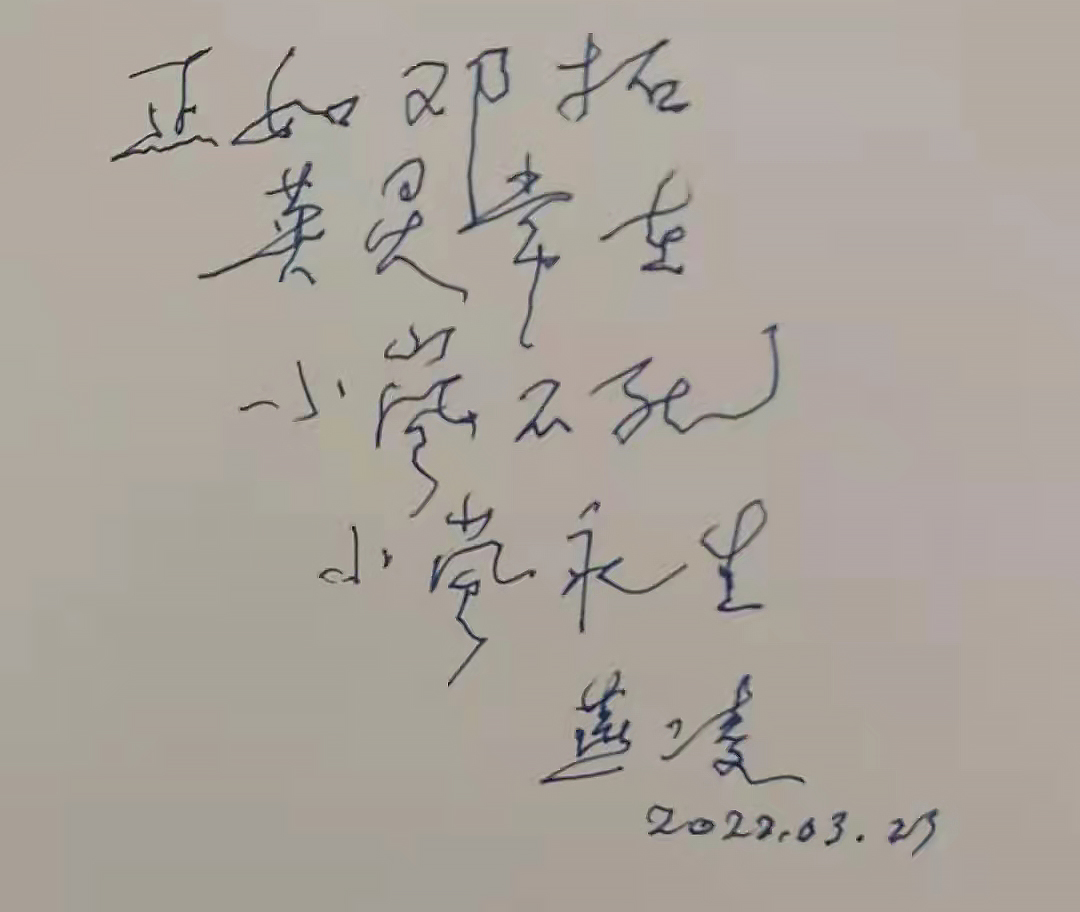 正如邓拓
英灵常在
小岚不死
小岚永生
燕凌
2022.03.23